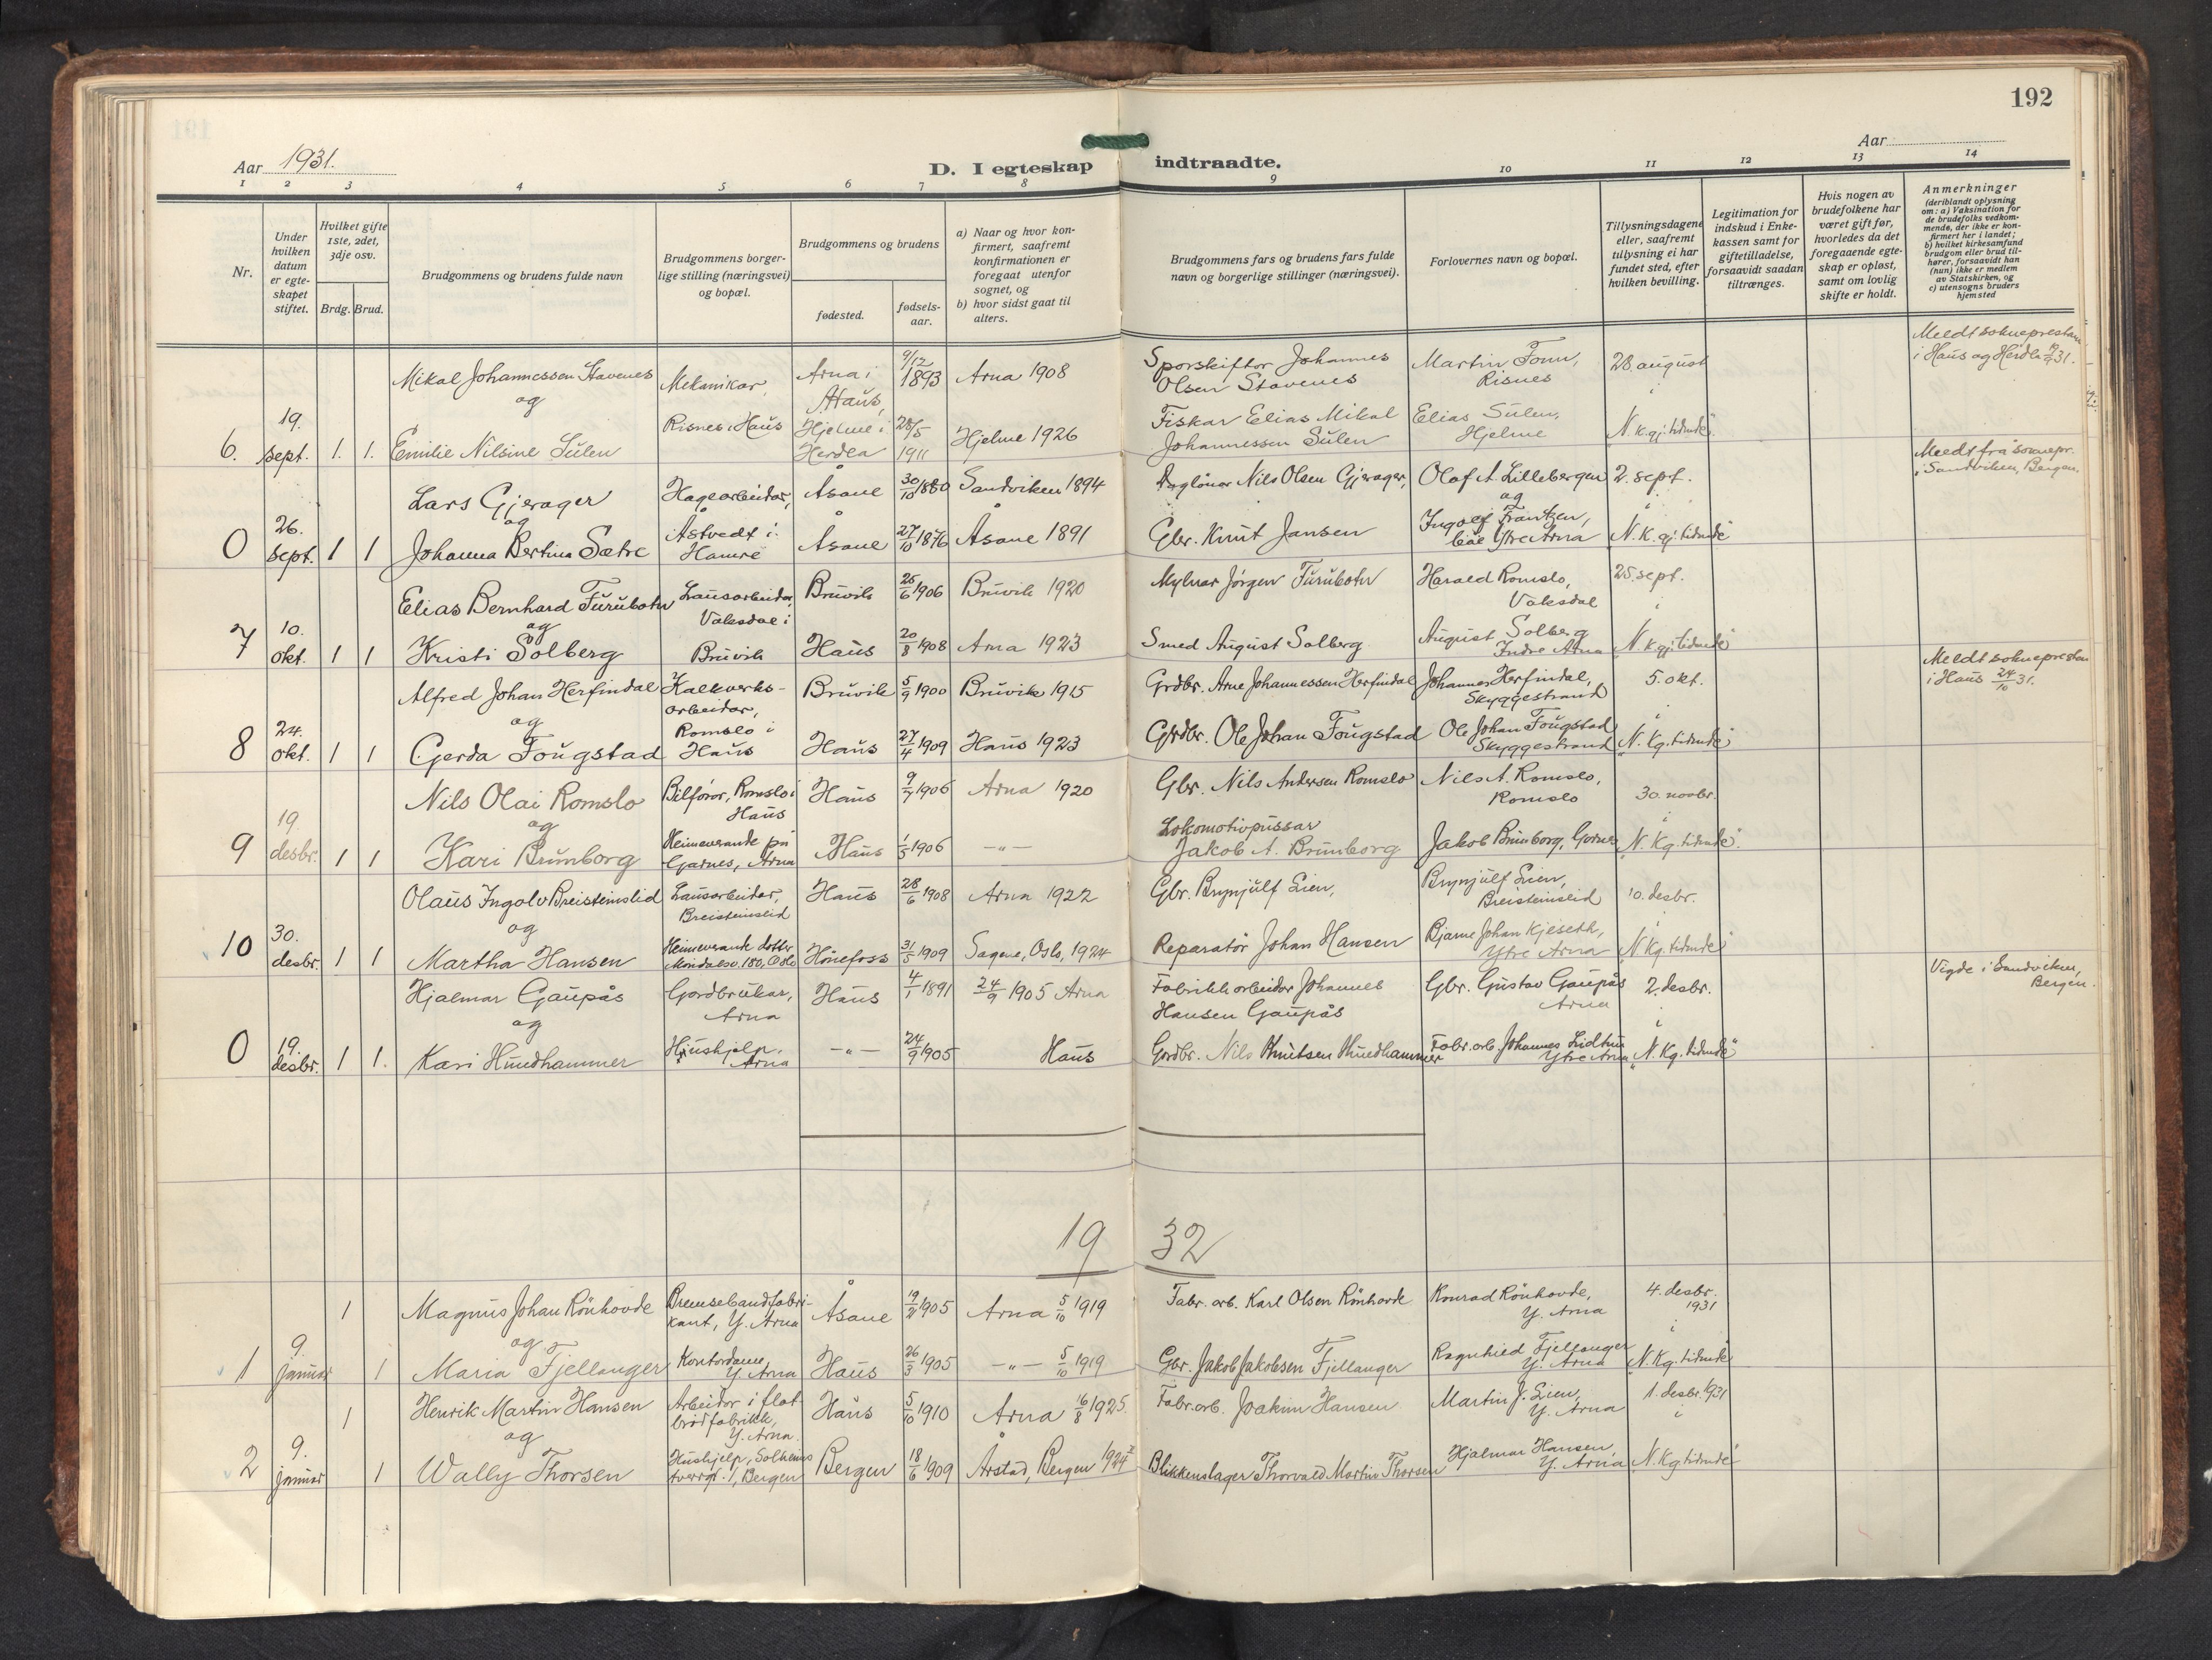 192
Aar 1931.
Aar
D. I egteskap indtraadte.
1 2 3 4 5 6 7 8 9 10 11 12 13 14
Nr.
Under hvilken datum er egteskapet stiftet.
Hvilket gifte 1ste, 2det, 3dje osv.
Brdg. Brud.
Brudgommens og brudens fulde navn
Brudgommens borgerlige stilling (næringsvei) og bopæl.
Brudgommens og brudens
fødested.
fødselsaar.
a) Naar og hvor konfirmert, saafremt konfirmationen er foregaat utenfor sognet, og
b) hvor sidst gaat til alters.
Brudgommens fars og brudens fars fulde navn og borgerlige stillinger (næringsvei).
Forlovernes navn og bopæl.
Tillysningsdagene eller, saafremt tillysning ei har fundet sted, efter hvilken bevilling.
Legitimation for indskud i Enkekassen samt for giftetilladelse, forsaavidt saadan tiltrænges.
Hvis nogen av brudefolkene har været gift før, hvorledes da det foregaaende egteskap er opløst, samt om lovlig skifte er holdt.
Anmerkninger (deriblandt oplysning om: a) Vaksination for de brudefolks vedkommende, der ikke er konfirmert her i landet; b) hvilket kirkesamfund brudgom eller brud tilhører, forsaavidt han (hun) ikke er medlem av Statskirken, og c) utensogns bruders hjemsted
Mikal Johannessen Stavenes Mekanikar, Arna i Haus, 9/12 1893 Arna 1908 Sporskiftor Johannes Olsen Stavenes Martin Tonn, Risnes 28. august Meldt sokneprestane i Haus og Herdla 19/9 31.
og
6. 19. sept. 1. 1. Emilie Nilsine Sulen Risnes i Haus Hjelme i Herdla 28/5 1911 Hjelme 1926 Fiskar Elias Mikal Johannessen Sulen Elias Sulen, Hjelme i "N. kgj. tidende".
Lars Gjerager Hagearbeidar, Åsane 30/10 1880 Sandviken 1894 Daglönar Nils Olsen Gjerager, Olaf A. Lillebergen 2. sept. Meldt frå soknepr. i Sandviken, Bergen.
og
0 26. sept. 1 1 Johanna Bertina Sætre Åstvedt i Hamre Åsane 27/10 1876 Åsane 1891 Gbr. Knut Jansen og Ingolf Frantzen, båe Ytre Arna "N. K. gj. tidende"
Elias Bernhard Furubotn Lausarbeidar, Vaksdal i Bruvik 25/6 1906 Bruvik 1920 Mylnar Jörgen Furubotn Harald Romslo, Vaksdal 25. sept. i
og
7 10. okt. 1 1 Kristi Solberg Bruvik Haus 20/8 1908 Arna 1923 Smed August Solberg August Solberg Indre Arna "N. kgj. tidende"
Alfred Johan Herfindal Kalkverksarbeidar, Bruvik 5/9 1900 Bruvik 1915 Grdbr. Arne Johannessen Herfindal Johannes Herfindal, Skyggestrand 5. okt. Meldt soknepresten i Haus 24/10 31.
og
8 24. okt. 1 1 Gerda Fougstad Romslo i Haus Haus 27/4 1909 Haus 1923 Grdbr. Ole Johan Fougstad Ole Johan Fougstad Skyggestrand i "N. Kg. tidende"
Nils Olai Romslo Bilförar, Romslo i Haus Haus 9/7 1906 Arna 1920 Gbr. Nils Andersen Romslo Nils A. Romslo, Romslo 30. novbr.
og
9 19. desbr. 1 1 Kari Brunborg Heimeverande på Garnes, Arna Haus 1/5 1906 —„— Lokomotivpussar Jakob A. Brunborg Jakob Brunborg, Garnes i "N. Kg. tidende".
Olaus Ingolv Breisteinslid Lausarbeidar, Breisteinslid Haus 28/6 1908 Arna 1922 Gbr. Brynjulf Lien, Brynjulf Lien, Breisteinslid 10. desbr.
og
10 30. desbr. 1 1 Martha Hansen Heimeverande dotter Maridalsv. 180, Oslo Hönefoss 31/5 1909 Sagene, Oslo, 1924 Reparatör Johan Hansen Bjarne Johan Kjeseth, Ytre Arna i "N. Kg. tidende"
Hjalmar Gaupås Gardbrukar, Arna Haus 4/1 1891 24/9 1905 Arna Fabrikkarbeidar Johannes Hansen Gaupås Gbr. Gustav Gaupås Arna 2. desbr. Vigde i Sandviken, Bergen.
og
0 19. desbr. 1 1. Kari Hundhammer Hushjelp, Arna —„— 24/9 1905 Haus Grdbr. Nils Knutsen Hundhammer Fabr. arb. Johannes Lidtun Ytre Arna i "N. Kg. tidende"
19 32
1 Magnus Johan Rönhovde Bremsebandfabrikant, Y. Arna Åsane 19/2 1905 Arna 5/10 1919 Fabr. arb. Karl Olsen Rönhovde Konrad Rönhovde, Y. Arna 4. desbr. 1931 i
og
1 9. januar 1 Maria Fjellanger Kontordame, Y. Arna Haus 26/3 1905 —„— 5/10 1919 Gbr. Jakob Jakobsen Fjellanger Ragnhild Fjellanger Y. Arna "N. Kg. tidende"
1 Henrik Martin Hansen Arbeidar i flatbrödfabrikk, Y. Arna. Haus 5/10 1910 Arna 16/8 1925. Fabr. arb. Joakim Hansen Martin J. Lien, Y. Arna 1. desbr. 1931 i
og
2 9. januar 1 Wally Thorsen Hushjelp, Solheims tverrg. 1, Bergen Bergen 18/6 1909 Årstad, Bergen 1924 Blikkenslager Thorvald Martin Thorsen Hjalmar Hansen, Y. Arna "N. Kg tidende"